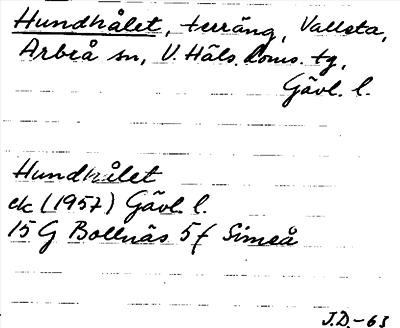 Hundhålet, terräng, Vallsta,
Arbrå sn, V. Häls. doms. tg,
Gävl. l.
Hundhålet
ek (1957) Gävl. l.
15 G Bollnäs 5f Simeå
J.D.-63